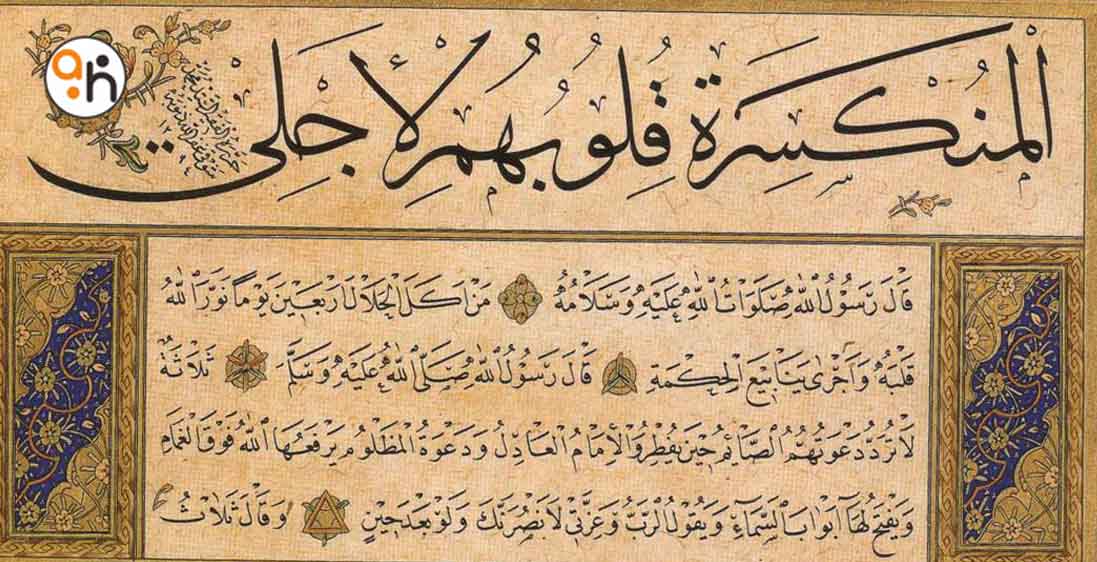 المنكسرة قلوبهم لأجلي
قَالَ رَسُولُ اللّٰهِ صَلَوَاتُ اللّٰهِ عَلَيْهِ وَسَلَامُهُ مَنْ اَكَلَ الْحَلَالَ اَرْبَعِينَ يَوْمًا نَوَّرَ اللّٰهُ
قَلْبَهُ وَاَجْرٰى يَنَابِيعَ الْحِكْمَةِ قَالَ رَسُولُ اللّٰهِ صَلَّى اللّٰهُ عَلَيْهِ وَسَلَّمَ ثَلَاثَةٌ
لَا تُرَدُّ دَعْوَتُهُمُ الصَّائِمُ حِينَ يُفْطِرُ وَالْاِمَامُ الْعَادِلُ وَدَعْوَةُ الْمَظْلُومِ يَرْفَعُهَا اللّٰهُ فَوْقَ الْغَمَامِ
وَيَفْتَحُ لَهَا اَبْوَابَ السَّمَاءِ وَيَقُولُ الرَّبُّ وَعِزَّتِي لَاَنْصُرَنَّكَ وَلَوْ بَعْدَ حِينٍ وَقَالَ ثَلَاثُ